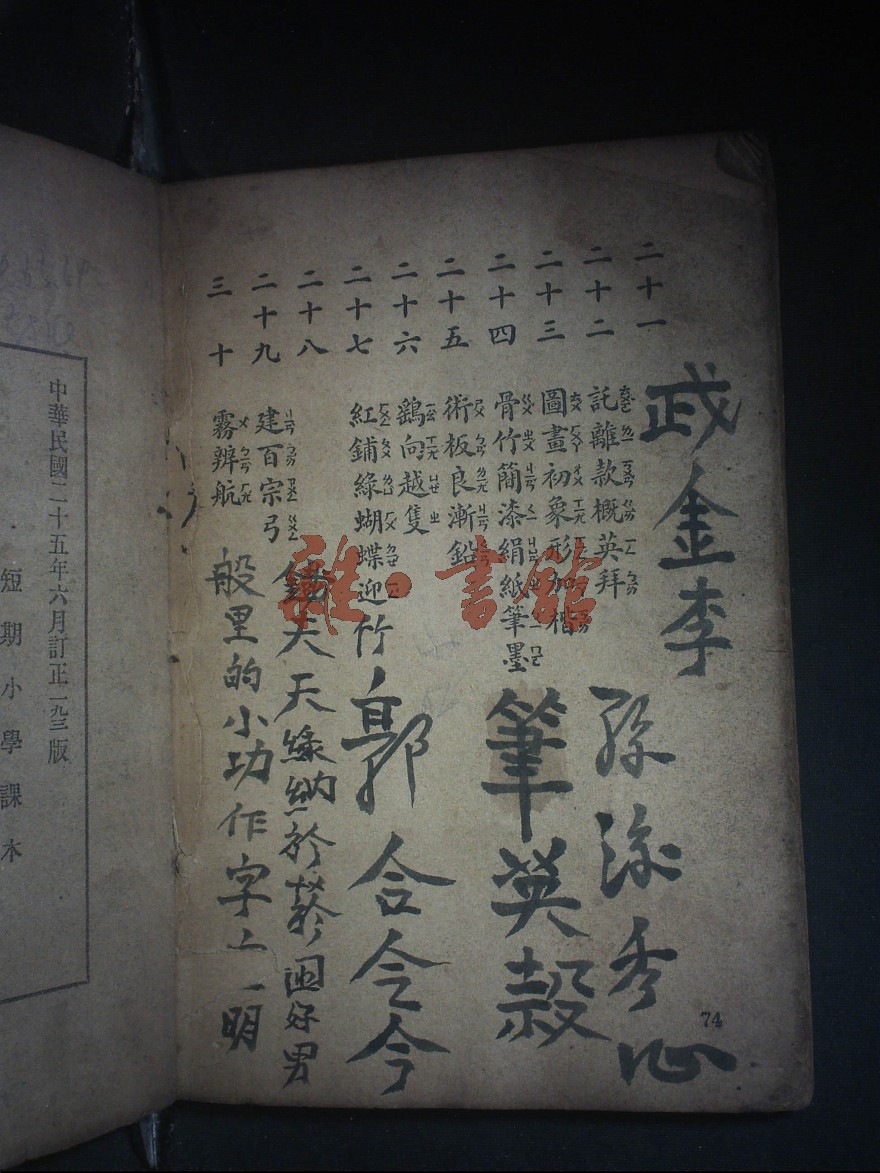 二十一
二十二 託離款概英拜
二十三 圖畫初象形加楷
二十四 骨竹簡漆絹紙筆墨
二十五 術板良漸鉛
二十六 鷄向越隻
二十七 紅鋪綠蝴蝶迎竹
二十八
二十九 建百宗弓
三十 霧辨航
金李
秀心
筆英穀
郭合令今
夫天緣納於
國好男
般里的小功作字
明
74
雜·書館
中華民國二十五年六月訂正一九三版
短期小學課本